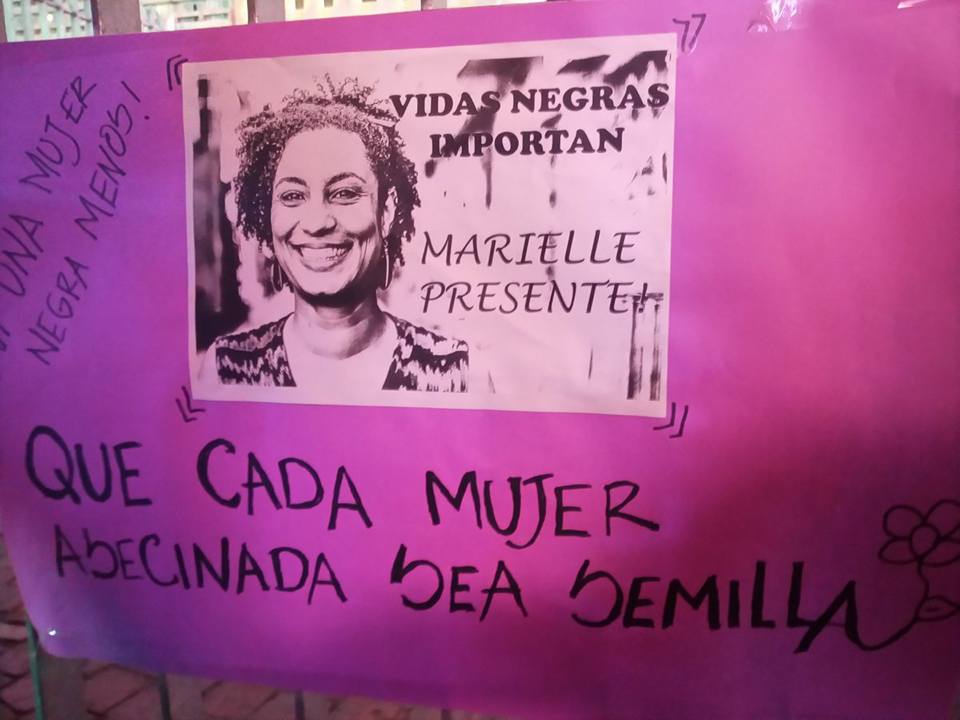 UNA MUJER
NEGRA MENOS!
VIDAS NEGRAS
IMPORTAN
MARIELLE
PRESENTE!
QUE CADA MUJER
ASECINADA SEA SEMILLA